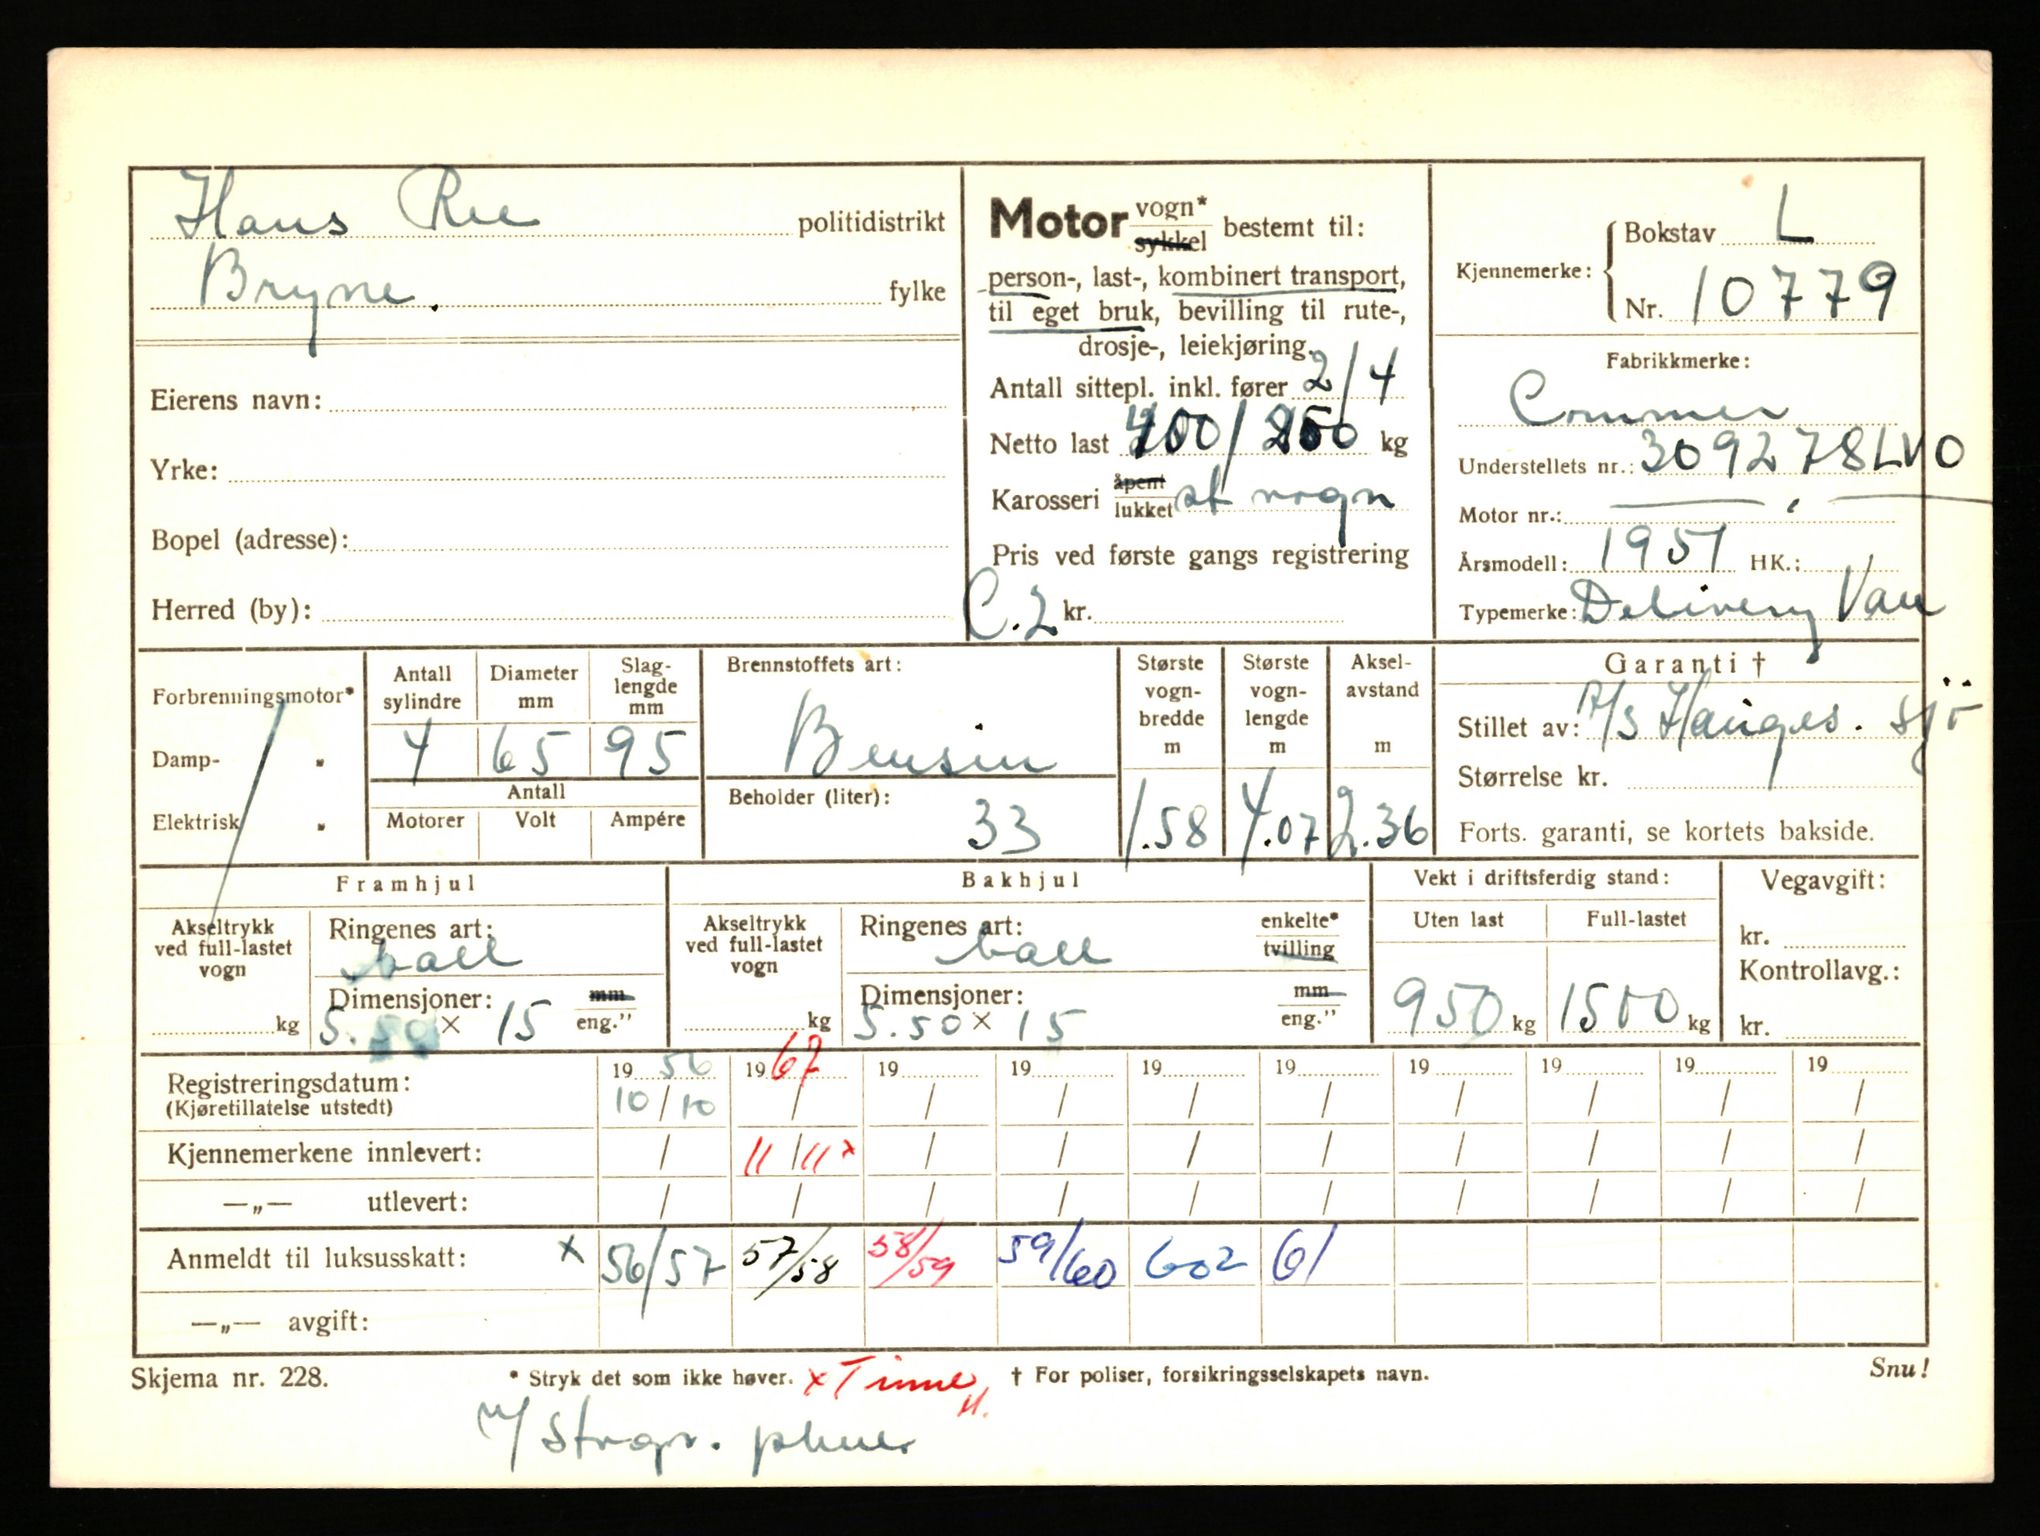 Hans Ree politidistrikt
Bryne. fylke
Eierens navn:
Yrke:
Bopel (adresse):
Herred (by):
Motor vogn* sykkel bestemt til:
person-, last-, kombinert transport,
til eget bruk, bevilling til rute-,
drosje-, leiekjøring.
Antall sittepl. inkl. fører 2/4
Netto last 400/250 kg
Karosseri åpent lukket st vogn
Pris ved første gangs registrering
C.2 kr.
Kjennemerke: Bokstav L
Nr. 10779
Fabrikkmerke:
Commer
Understellets nr.: 309278LVO
Motor nr.:
Årsmodell: 1951 HK.:
Typemerke: Delivery Van
Forbrenningsmotor*
Damp- "
Elektrisk "
Antall sylindre Diameter mm Slag-lengde mm
4 65 95
Antall
Motorer Volt Ampére
Brennstoffets art:
Bensin
Beholder (liter):
33
Største vogn-bredde m Største vogn-lengde m Aksel-avstand m
1.58 4.07 2.36
Garanti †
Stillet av: A/S Hauges. Sjö
Størrelse kr.
Forts. garanti, se kortets bakside.
Framhjul
Akseltrykk ved full-lastet vogn
kg
Ringenes art:
ball
Dimensjoner: mm
5.50 × 15 eng."
Bakhjul
Akseltrykk ved full-lastet vogn
kg
Ringenes art: enkelte*
ball tvilling
Dimensjoner: mm
5.50 × 15 eng."
Vekt i driftsferdig stand:
Uten last Full-lastet
950 kg 1500 kg
Vegavgift:
kr.
Kontrollavg.:
kr.
Registreringsdatum: 19 56 19 67 19 19 19 19 19 19 19 19
(Kjøretillatelse utstedt) 10/10 / / / / / / / / /
Kjennemerkene innlevert: / 11/11 x / / / / / / / /
—„— utlevert: / / / / / / / / / /
Anmeldt til luksusskatt: x 56/57 57/58 58/59 59/60 602 61
—„— avgift:
Skjema nr. 228. * Stryk det som ikke høver. x Time H. † For poliser, forsikringsselskapets navn. Snu!